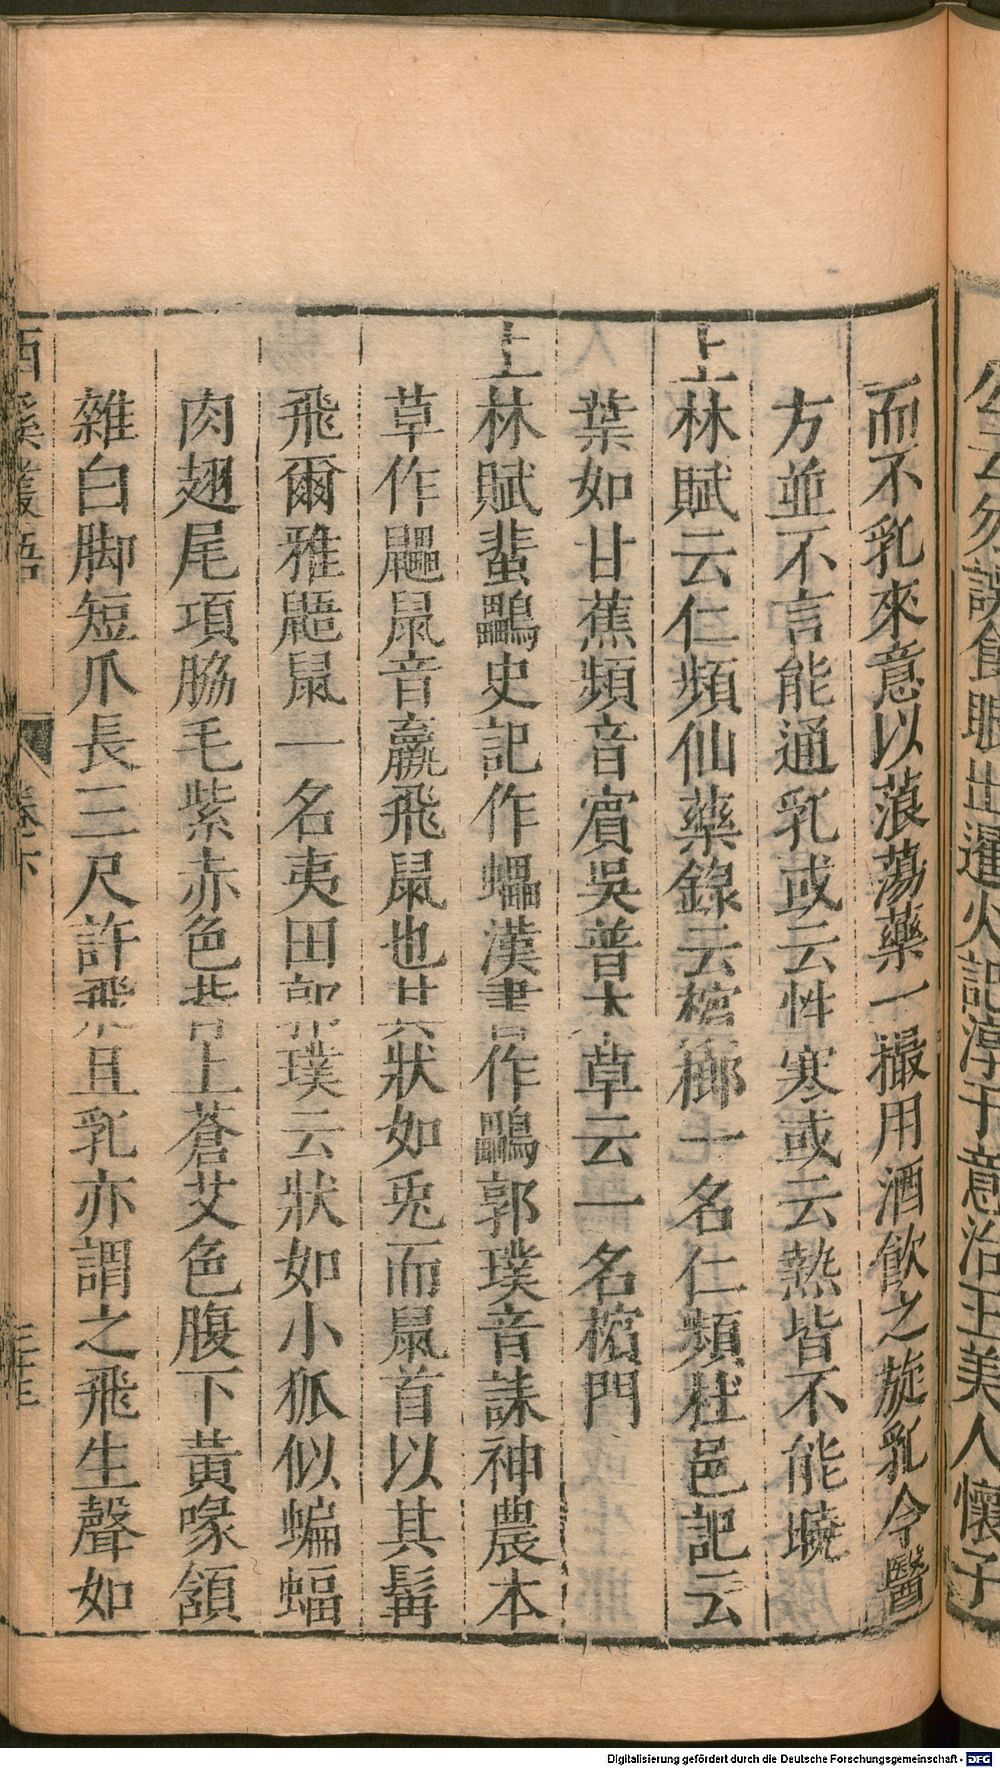 公云勿誤食眼出暹火記淳于意治王美人懷子
而不乳來意以蒗蕩藥一撮用酒飲之旋乳今醫
方並不言能通乳或云性寒或云熱皆不能曉
上林賦云仁頻仙藥錄云檳榔一名仁頻杜邑記云
葉如甘蕉頻音賓吳普本草云一名檳門
上林賦蜚鸓史記作蠝漢書作鸓郭璞音誄神農本
草作鼺鼠音羸飛鼠也其狀如兎而鼠首以其髯
飛爾雅鼯鼠一名夷田郭璞云狀如小狐似蝙蝠
肉翅尾項脇毛紫赤色背上蒼艾色腹下黃喙頷
雜白脚短爪長三尺許飛且乳亦謂之飛生聲如
西溪叢語 卷下
Digitalisierung gefördert durch die Deutsche Forschungsgemeinschaft - DFG